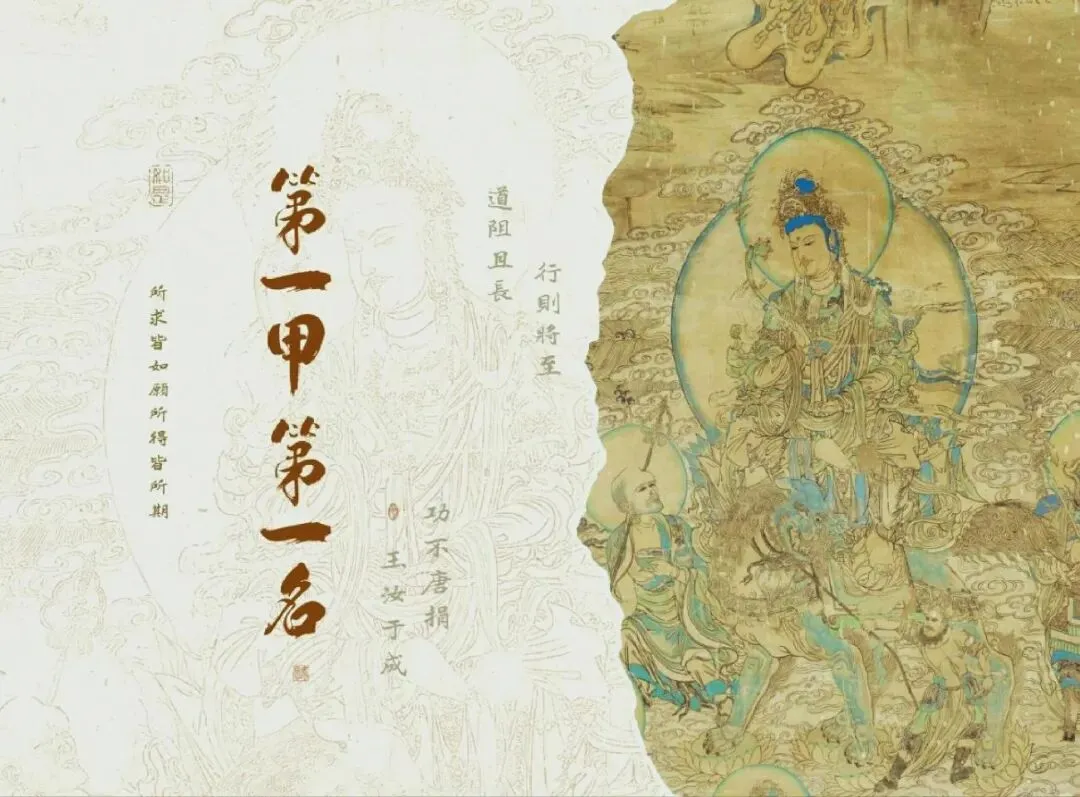 道阻且長
行則將至
第一甲第一名
所求皆如願所得皆所期
功不唐捐
王汝于成